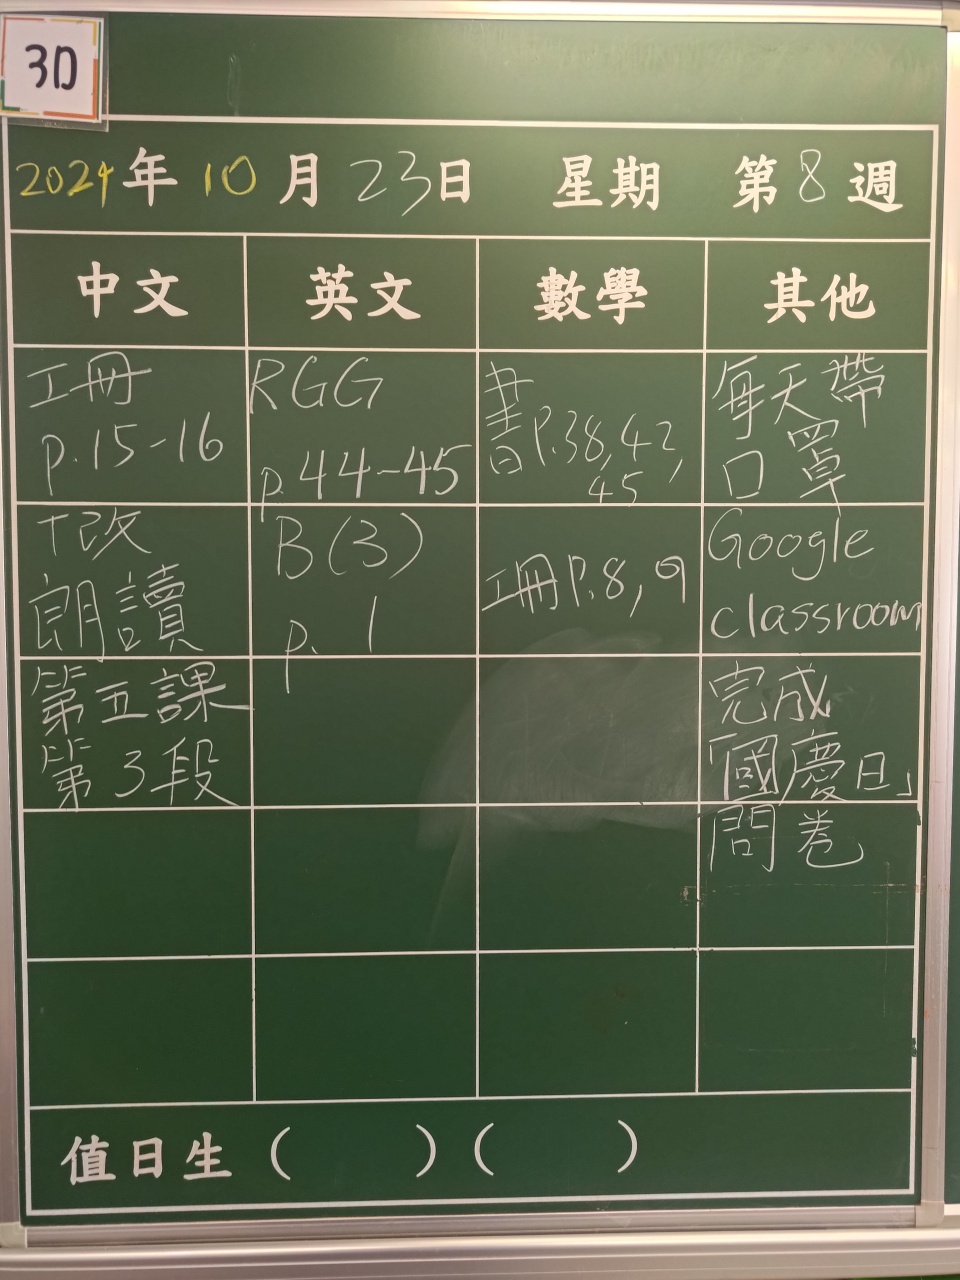 3D
2024年 10月 23日 星期 第8週
中文 英文 數學 其他
工冊
p.15-16
RGG
p.44-45
書P.38,42,
45
每天帶
口罩
T改
朗讀
B(3)
p.1
工冊P.8,9
Google
classroom
第五課
第3段
完成
「國慶日」
問卷
值日生 ( ) ( )